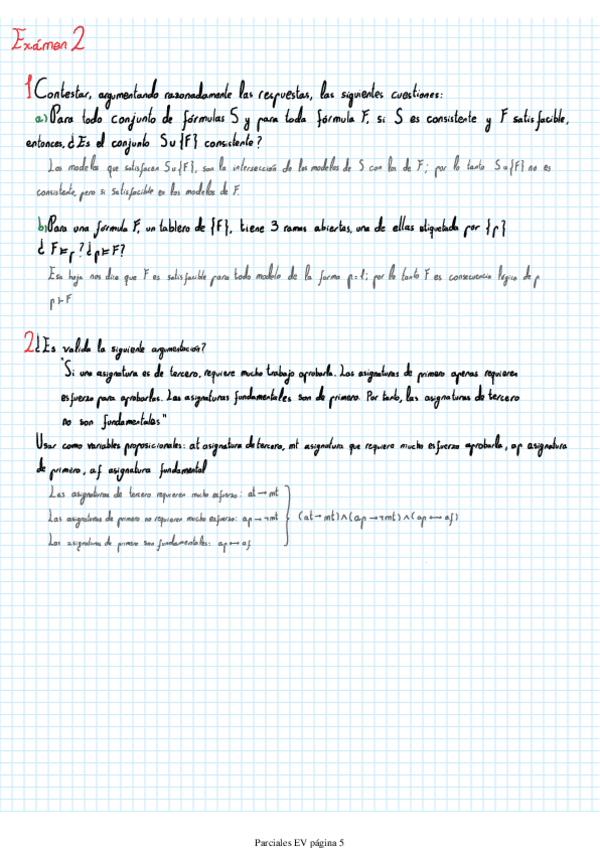 Exámen 2
1 Contestar, argumentando razonadamente las respuestas, las siguientes cuestiones:
a) Para todo conjunto de fórmulas S y para toda fórmula F, si S es consistente y F satisfacible,
entonces, ¿Es el conjunto S∪{F} consistente?
Los modelos que satisfacen S∪{F}, son la intersección de los modelos de S con los de F; por lo tanto S∪{F} no es
consistente, pero si satisfacible en los modelos de F.
b) Para una formula F, un tablero de {F}, tiene 3 ramas abiertas, una de ellas etiquetada por {p}
¿ F⊨p? ¿p⊨F?
Esa hoja nos dice que F es satisfacible para todo modelo de la forma p=1; por lo tanto F es consecuencia lógica de p
p⊦F
2 ¿Es valida la siguiente argumentación?
"Si una asignatura es de tercero, requiere mucho trabajo aprobarla. Las asignaturas de primero apenas requieren
esfuerzo para aprobarlas. Las asignaturas fundamentales son de primero. Por tanto, las asignaturas de tercero
no son fundamentales"
Usar como variables proposicionales: at asignatura de tercero, mt asignatura que requiere mucho esfuerzo aprobarla, ap asignatura
de primero, af asignatura fundamental
Las asignaturas de tercero requieren mucho esfuerzo: at→mt
Las asignaturas de primero no requieren mucho esfuerzo: ap→¬mt } (at→mt)∧(ap→¬mt)∧(ap↔af)
Las asignaturas de primero son fundamentales: ap↔af
Parciales EV página 5